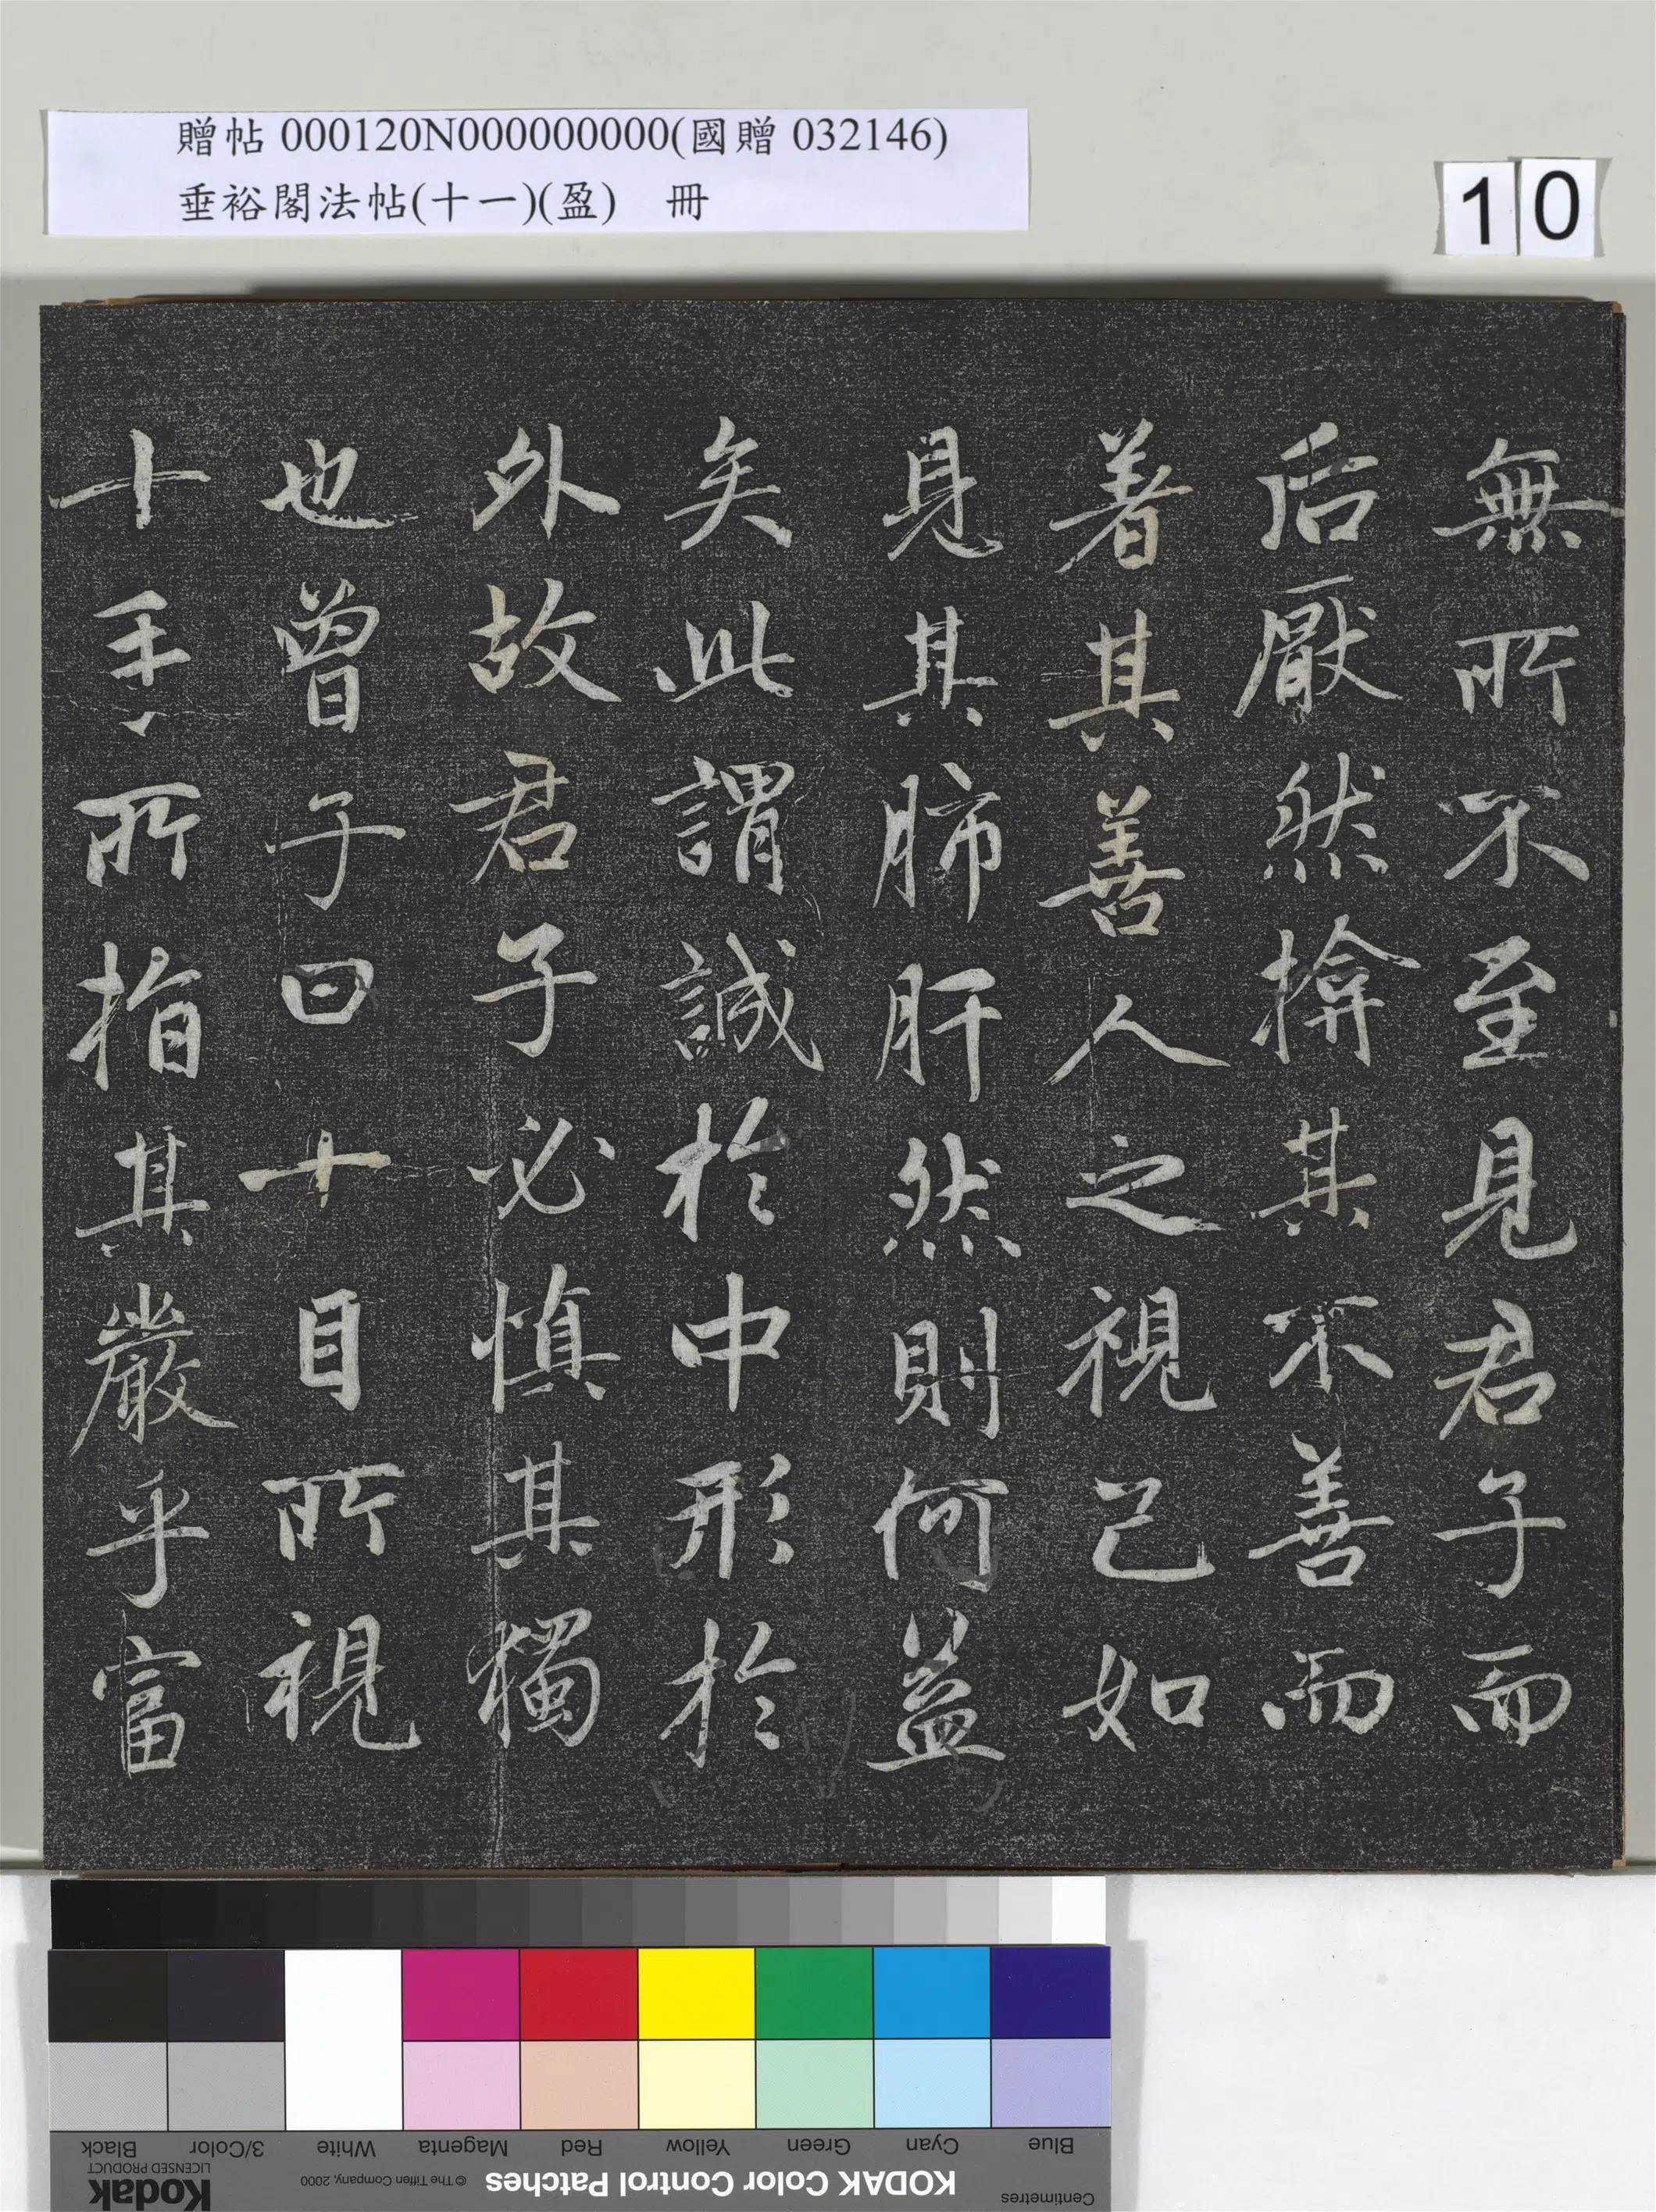 贈帖 000120N000000000(國贈 032146)
垂裕閣法帖(十一)(盈) 冊
10
無所不至見君子而
后厭然揜其不善而
著其善人之視己如
見其肺肝然則何益
矣此謂誠於中形於
外故君子必慎其獨
也曾子曰十目所視
十手所指其嚴乎富
Black
3/Color
White
Magenta
Red
Yellow
Green
Cyan
Blue
Kodak
LICENSED PRODUCT
© The Tiffen Company, 2000
KODAK Color Control Patches
Centimetres